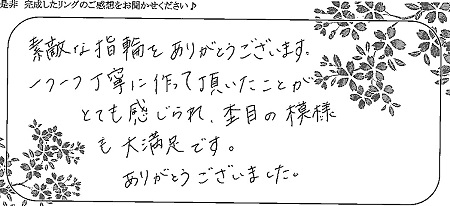 是非 完成したリングのご感想をお聞かせください♪
素敵な指輪をありがとうございます。
一つ一つ丁寧に作って頂いたことが
とても感じられ、杢目の模様
も大満足です。
ありがとうございました。